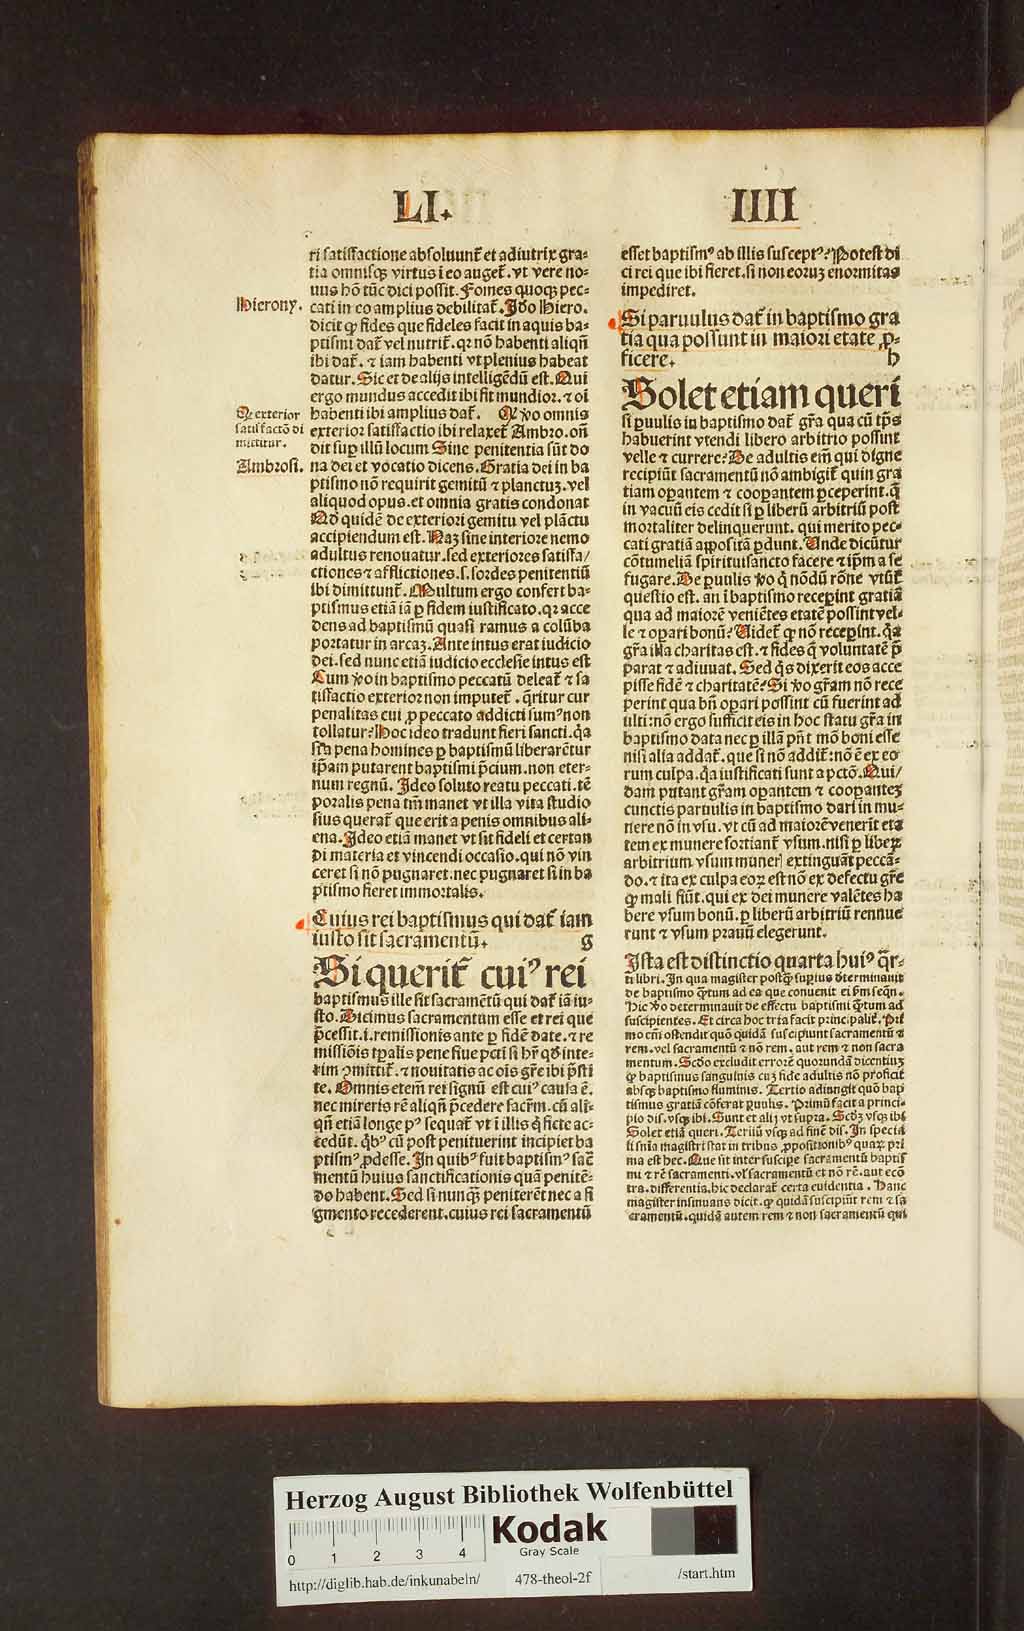 LI. IIII
ri satisfactione absoluunt̃ et adiutrix gra⸗
tia omnisqꝫ virtus ĩ eo auget̃. vt vere no⸗
uus hõ tũc dici possit. Fomes quoqꝫ pec⸗
Hierony.
cati in eo amplius debilitat̃. Jdõ Hiero.
dicit ꝙ fides que fideles facit in aquis ba⸗
ptismi dat̃ vel nutrit̃. qꝛ nõ habenti aliqñ
ibi dat̃. ⁊ iam habenti vt plenius habeat
datur. Sic et de alijs intelligẽdũ est. Qui
ergo mundus accedit ibi fit mundior. ⁊ oi
Qꝛ exterior
satisfactõ di
mittitur.
habenti ibi amplius dat̃. Qꝛ ꝟo omnis
exterior satisfactio ibi relaxet̃ Ambro. oñ
dit suꝑ illũ locum Sine penitentia sũt do
Ambrosi.
na dei et vocatio dicens. Gratia dei in ba
ptismo nõ requirit gemitũ ⁊ planctuꝫ. vel
aliquod opus. et omnia gratis condonat
Qđ quidẽ de exteriori gemitu vel plãctu
accipiendum est. Naꝫ sine interiore nemo
adultus renouatur. sed exteriores satisfa/
ctiones ⁊ afflictiones .s. sordes penitentiũ
ibi dimittunt̃. Multum ergo confert ba⸗
ptismus etiã iã ꝑ fidem iustificato. qꝛ acce
dens ad baptismũ quasi ramus a colũba
portatur in arcaꝫ. Ante intus erat iudicio
dei. sed nunc etiã iudicio ecclesie intus est
Cum ꝟo in baptismo peccatũ deleat̃ ⁊ sa
tisfactio exterior non imputet̃. q̃ritur cur
penalitas cui ꝓ peccato addicti sumꝰ non
tollatur? Hoc ideo tradunt fieri sancti. q̃a
si ista pena homines ꝑ baptismũ liberarẽtur
ip̃am putarent baptismi p̃cium. non eter⸗
num regnũ. Jdeo soluto reatu peccati. tẽ
poralis pena tñ manet vt illa vita studio
sius querat̃ que erit a penis omnibus ali⸗
ena. Jdeo etiã manet vt sit fideli et certan
di materia et vincendi occasio. qui nõ vin
ceret si nõ pugnaret. nec pugnaret si in ba
ptismo fieret immortalis.
Cuius rei baptismus qui dat̃ iam
iusto sit sacramentũ. g
Si querit̃ cuiꝰ rei
baptismus ille sit sacramẽtũ qui dat̃ iã iu⸗
sto. Dicimus sacramentum esse et rei que
p̃cessit .i. remissionis ante ꝑ fidẽ date. ⁊ re
missiõis tꝑalis pene siue pcti si hr̃ qđ inte⸗
rim ꝯmittit̃. ⁊ nouitatis ac ois gr̃e ibi p̃sti
te. Omnis etem̃ rei signũ est cuiꝰ causa ẽ.
nec mireris rẽ aliqñ p̃cedere sacr̃m. cũ ali⸗
qñ etiã longe pꝰ sequat̃ vt ĩ illis q̃ ficte ac⸗
cedũt. q̃bꝰ cũ post penituerint incipiet ba
ptismꝰ ꝓdesse. Jn quibꝰ fuit baptismꝰ sac̃
mentũ huius sanctificationis quã penitẽ⸗
do habent. Sed si nunqꝫ peniterẽt nec a fi
gmento recederent. cuius rei sacramentũ
esset baptismꝰ ab illis susceptꝰ? Potest di
ci rei que ibi fieret. si non eoruꝫ enormitas
impediret.
Si paruulus dat̃ in baptismo gra
tia qua possunt in maiori etate ꝓ⸗
ficere. h
Solet etiam queri
si ꝑuulis in baptismo dat̃ gr̃a qua cũ tp̃s
habuerint vtendi libero arbitrio possint
velle ⁊ currere? De adultis em̃ qui digne
recipiũt sacramentũ nõ ambigit̃ quin gra
tiam oꝑantem ⁊ cooꝑantem ꝑceperint. q̃
in vacuũ eis cedit si ꝑ liberũ arbitriũ post
mortaliter delinquerunt. qui merito pec⸗
cati gratiã appositã ꝑdunt. Unde dicũtur
cõtumeliã spirituisancto facere ⁊ ip̃m a se
fugare. De ꝑuulis ꝟo q̃ nõdũ rõne vtũt̃
questio est. an ĩ baptismo receꝑint gratiã
qua ad maiorẽ veniẽtes etatẽ possint vel⸗
le ⁊ oꝑari bonũ? Uidet̃ ꝙ nõ receꝑint. q̃a
gr̃a illa charitas est. ⁊ fides q̃ voluntatẽ p̃
parat ⁊ adiuuat. Sed q̃s dixerit eos acce
pisse fidẽ ⁊ charitatẽ? Si ꝟo gr̃am nõ rece
perint qua bñ oꝑari possint cũ fuerint ad
ulti: nõ ergo sufficit eis in hoc statu gr̃a in
baptismo data nec ꝑ illã pñt mõ boni esse
nisi alia addat̃. que si nõ addit̃: nõ ẽ ex eo
rum culpa. q̃a iustificati sunt a pctõ. Qui/
dam putant gr̃am oꝑantem ⁊ cooꝑanteꝫ
cunctis paruulis in baptismo dari in mu⸗
nere nõ in vsu. vt cũ ad maiorẽ venerĩt eta
tem ex munere sortiant̃ vsum. nisi ꝑ liberꝫ
arbitrium vsum muneris extinguãt peccã⸗
do. ⁊ ita ex culpa eoꝝ est nõ ex defectu gr̃e
ꝙ mali fiũt. qui ex dei munere valẽtes ha
bere vsum bonũ. ꝑ liberũ arbitriũ rennue
runt ⁊ vsum prauũ elegerunt.
Jsta est distinctio quarta huiꝰ q̃r⸗
ti libri. Jn qua magister postqꝫ suꝑius determinauit
de baptismo q̃tum ad ea que conuenit ei ẜm seqñ.
Hic ꝟo determinauit de effectu baptismi q̃tum ad
suscipientes. Et circa hoc tria facit principalit̃. Pri
mo em̃ ostendit quõ quidã suscipiunt sacramentũ ⁊
rem. vel sacramentũ ⁊ nõ rem. aut rem ⁊ non sacra
mentum. Scđo excludit errorẽ quorundã dicentiuꝫ
ꝙ baptismus sanguinis cuꝫ fide adultis nõ proficit
absqꝫ baptismo fluminis. Tertio adiungit quõ bap
tismus gratiã cõferat ꝑuulis. Primũ facit a princi⸗
pio dis. vsqꝫ ibi. Sunt et alij vt supra. Scđꝫ vsqꝫ ibi
Solet etiã queri. Tertiũ vsqꝫ ad finẽ dis. Jn specia
li snĩa magistri stat in tribus ꝓpositionibꝰ quaꝝ pri
ma est hec. Que sit inter suscipe sacramentũ baptis
mi ⁊ rẽ sacramenti. vel sacramentũ et nõ rẽ. aut ecõ
tra. differentia. hic declarat̃ certa euidentia. Hanc
magister insinuans dicit. ꝙ quidã suscipiũt rem ⁊ sa
cramentũ. quidã autem rem ⁊ non sacramentũ qui
Herzog August Bibliothek Wolfenbüttel
0 1 2 3 4
Kodak
Gray Scale
http://diglib.hab.de/inkunabeln/ 478-theol-2f /start.htm